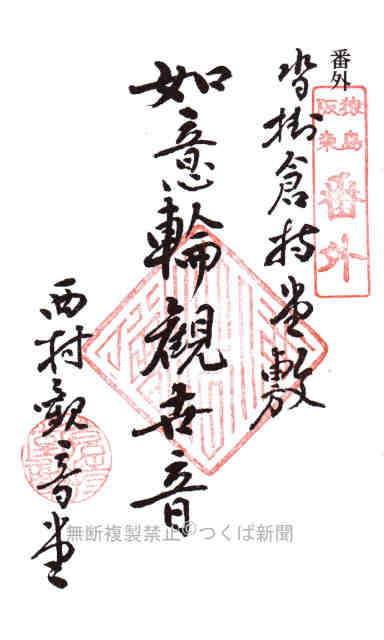 番外
猿島
阪東
番外
沓掛倉持堂敷
如意輪觀世音
西村觀音堂
無断複製禁止©つくば新聞